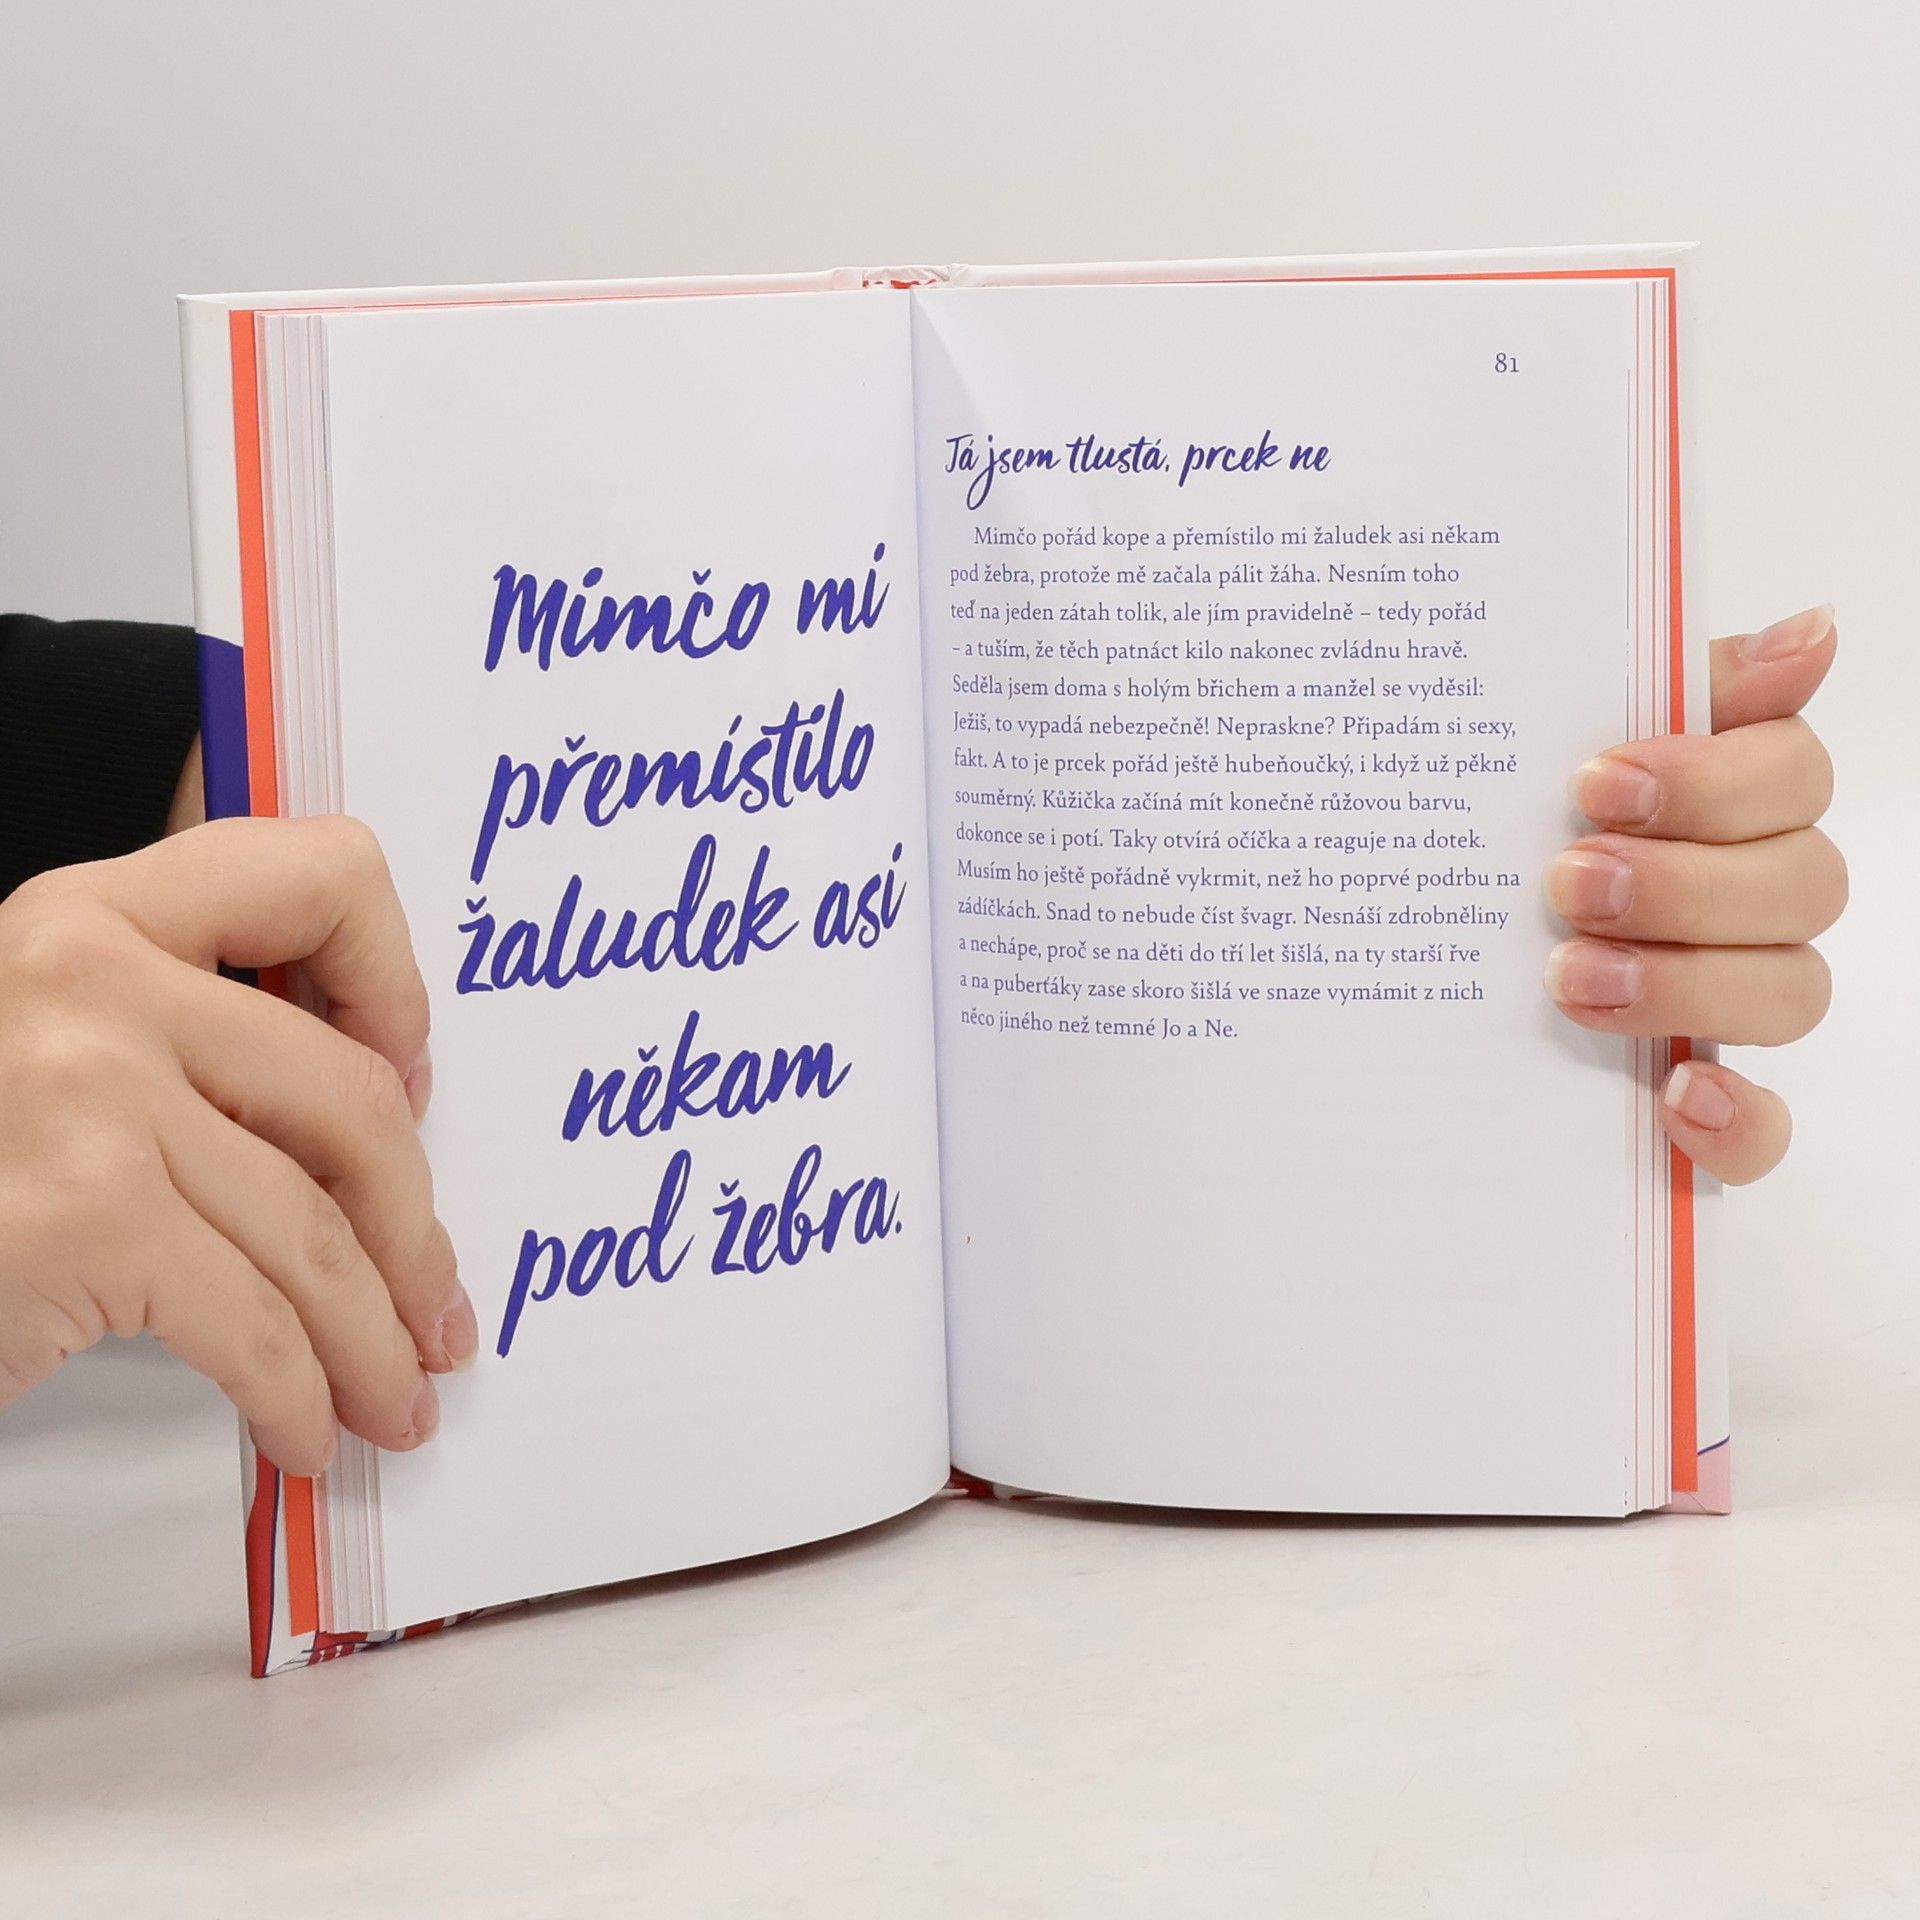 Mimčo mi
přemístilo
žaludek asi
někam
pod žebra.
81
Já jsem tlustá, prcek ne
Mimčo pořád kope a přemístilo mi žaludek asi někam
pod žebra, protože mě začala pálit žáha. Nesním toho
teď na jeden zátah tolik, ale jím pravidelně – tedy pořád
– a tuším, že těch patnáct kilo nakonec zvládnu hravě.
Seděla jsem doma s holým břichem a manžel se vyděsil:
Ježiš, to vypadá nebezpečně! Nepraskne? Připadám si sexy,
fakt. A to je prcek pořád ještě hubeňoučký, i když už pěkně
souměrný. Kůžička začíná mít konečně růžovou barvu,
dokonce se i potí. Taky otvírá očíčka a reaguje na dotek.
Musím ho ještě pořádně vykrmit, než ho poprvé podrbu na
zádíčkách. Snad to nebude číst švagr. Nesnáší zdrobněliny
a nechápe, proč se na děti do tří let šišlá, na ty starší řve
a na puberťáky zase skoro šišlá ve snaze vymámit z nich
něco jiného než temné Jo a Ne.